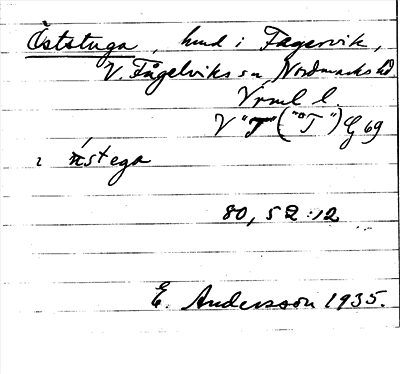 Öststuga, hmd i Fagervik,
V. Fågelviks sn, Nordmarks hd.
Vrml l.
V "T" ("T") G 69
i östega
80, 52:12
E. Andersson 1935.